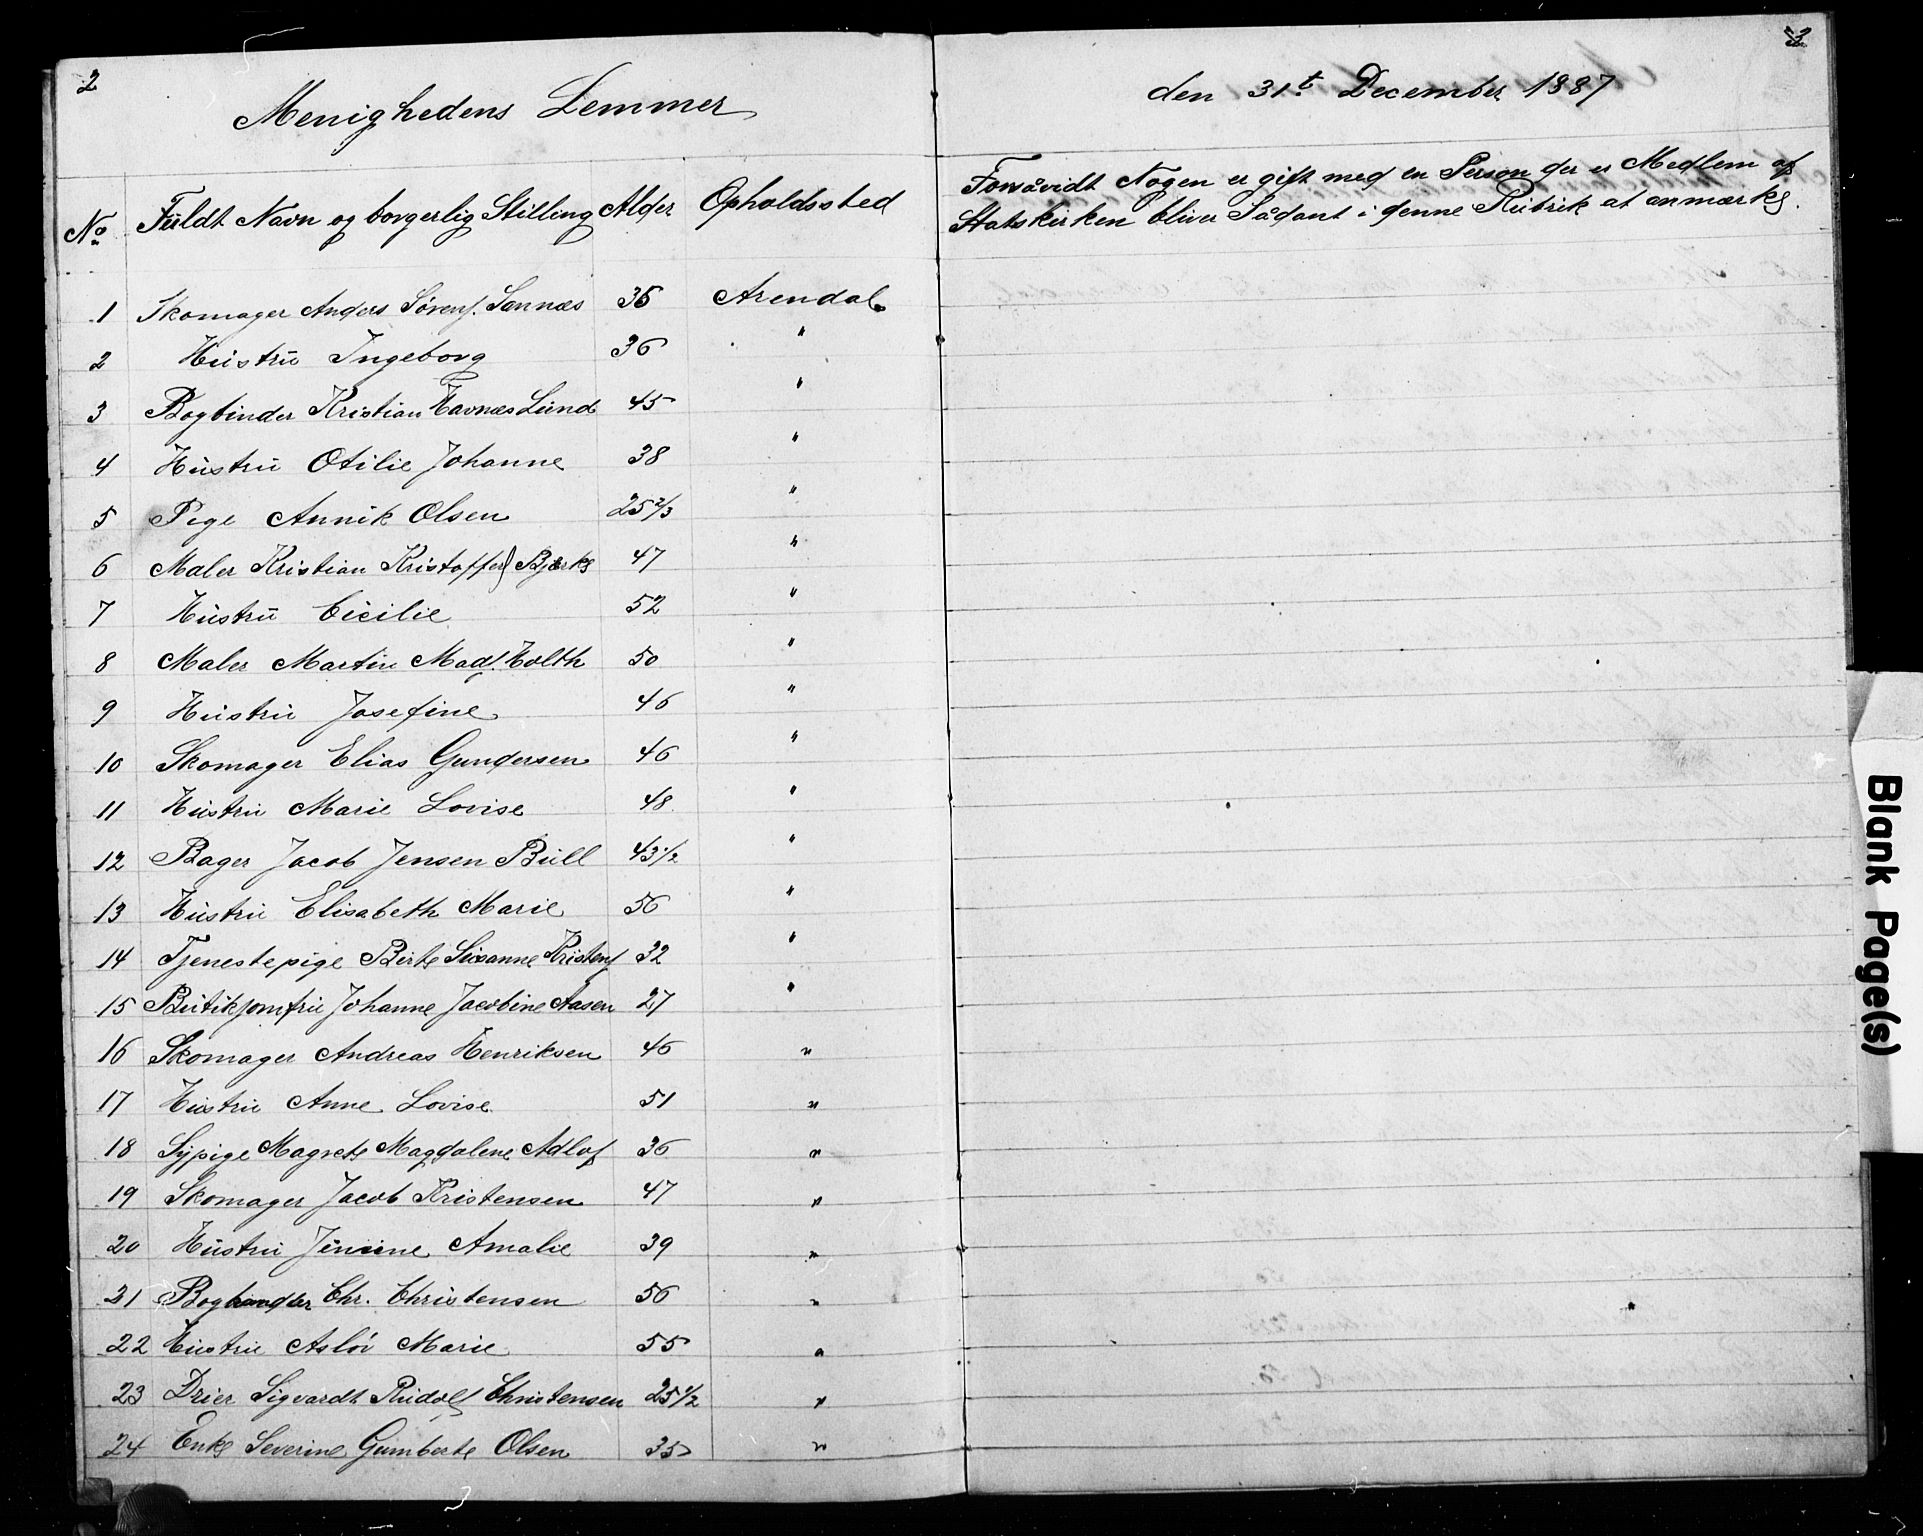 2
Menighedens Lemmer
den 31t December 1887
No
Fuldt Navn og borgerlig Stilling Alder Opholdssted
Forsåvidt Nogen er gift med en Person der er Medlem af
Statskirken bliver Sådant i denne Rubrik at anmærke.
1 Skomager Anders Sørens. Sannæs 36 Arendal
2 Hustru Ingeborg 36 "
3 Bogbinder Kristian Havnæs Lund 45 "
4 Hustru Otilie Johanne 38 "
5 Pige Annik Olsen 25 2/3 "
6 Maler Kristian Kristoffer) Bjerke 47 "
7 Hustru Cicilie 52 "
8 Maler Martin Mads. Holth 50 "
9 Hustru Josefine 46 "
10 Skomager Elias Gundersen 46 "
11 Hustru Marie Lovise 48 "
12 Bager Jacob Jensen Bull 43 1/2 "
13 Hustru Elisabeth Marie 56 "
14 Tjenestepige Birte Susanne Kristens 32 "
15 Butikjomfru Johanne Jacobine Aasen 27 "
16 Skomager Andreas Henriksen 46 "
17 Hustru Anne Lovise 51 "
18 Sypige Magrete Magdalene Adlof 36 "
19 Skomager Jacob Kristensen 47 "
20 Hustru Jensine Amalie 39 "
21 Boghandler Chr. Christensen 56 "
22 Hustru Aslöi Marie 55 "
23 Drier Sigvardt Rudolf Christensen 25 1/2 "
24 Enke Severine Gumberte Olsen 35 "
Blank Page(s)